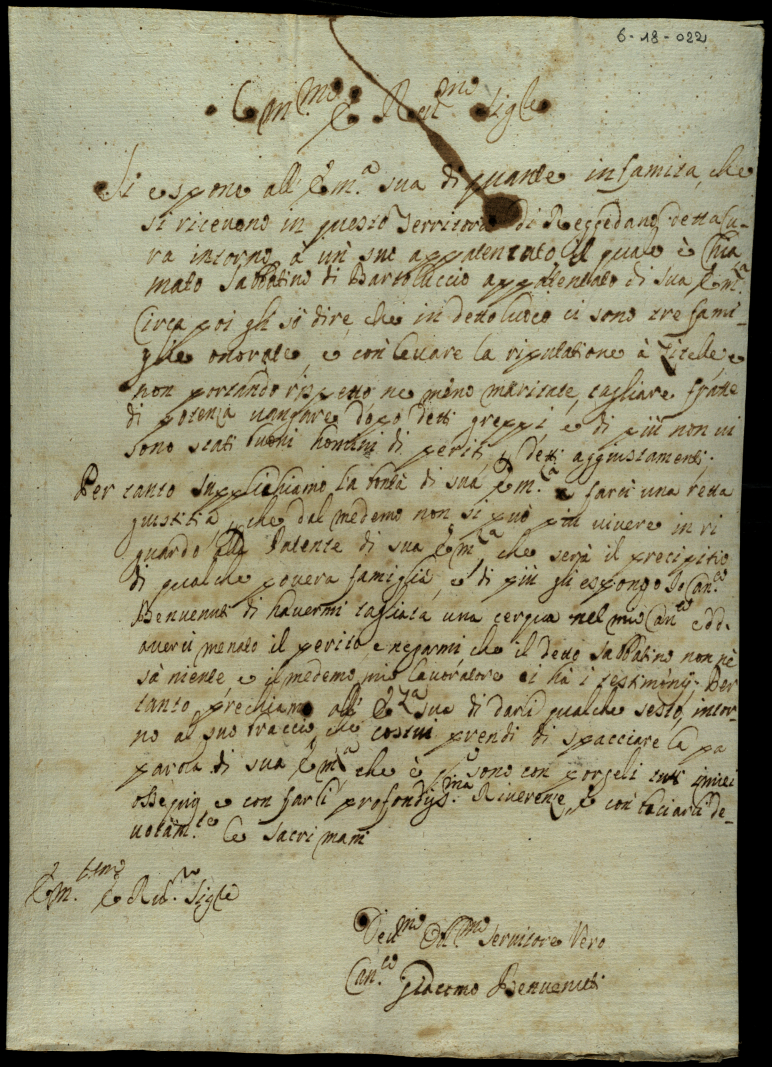 6-18-022
Em.mo e Reu.mo Sig.le
Si espone all' Em.a sua di quante infamità, che
si riceveno in questo Territorio di Reggedano detta Cu-
ra intorno à un suo appatentato, il quale è Chia
mato Sabbatino di Bartoluccio appatentato di sua Em.za
Circa poi gli sò dire, che in detto luoco ci sono tre fami-
glie onorate, e con levare la riputatione à Zitelle e
non portando rispetto ne meno maritate, tagliare fratte
di potenza vangare dopo detti greppi e di più non vi
sono stati buoni homini di periti, detti aggiustamenti.
Per tanto supplichiamo la bontà di sua Em.za à farci una retta
giustitia, che dal medemo non si può più vivere in ri
guardo alla Patente di sua Em.za, che serà il precipitio
di qualche povera famiglia, e di più gli espongo Io Can.co
Benvenuti di havermi tagliata una cerqua nel mio Can.to edd.
averci menato il perito e negarmi che il detto Sabbatino non nè
sà niente e il medemo mio lavoratore ci hà i testimonij. Per
tanto prechiamo all' E.za sua di darli qualche sesto, intor-
no al suo traccio, che costui prendi di spacciare la pa
parola di sua Em.za che è sono con porgeli tutti i miei
ossequij e con farli profondis.ma Riverenza, e con baciarli de-
votam.te le sacri mani
Em. e Reu. Sig.le
Deu.mo Obl.mo Servitore Vero
Can.co Giacomo Benvenuti